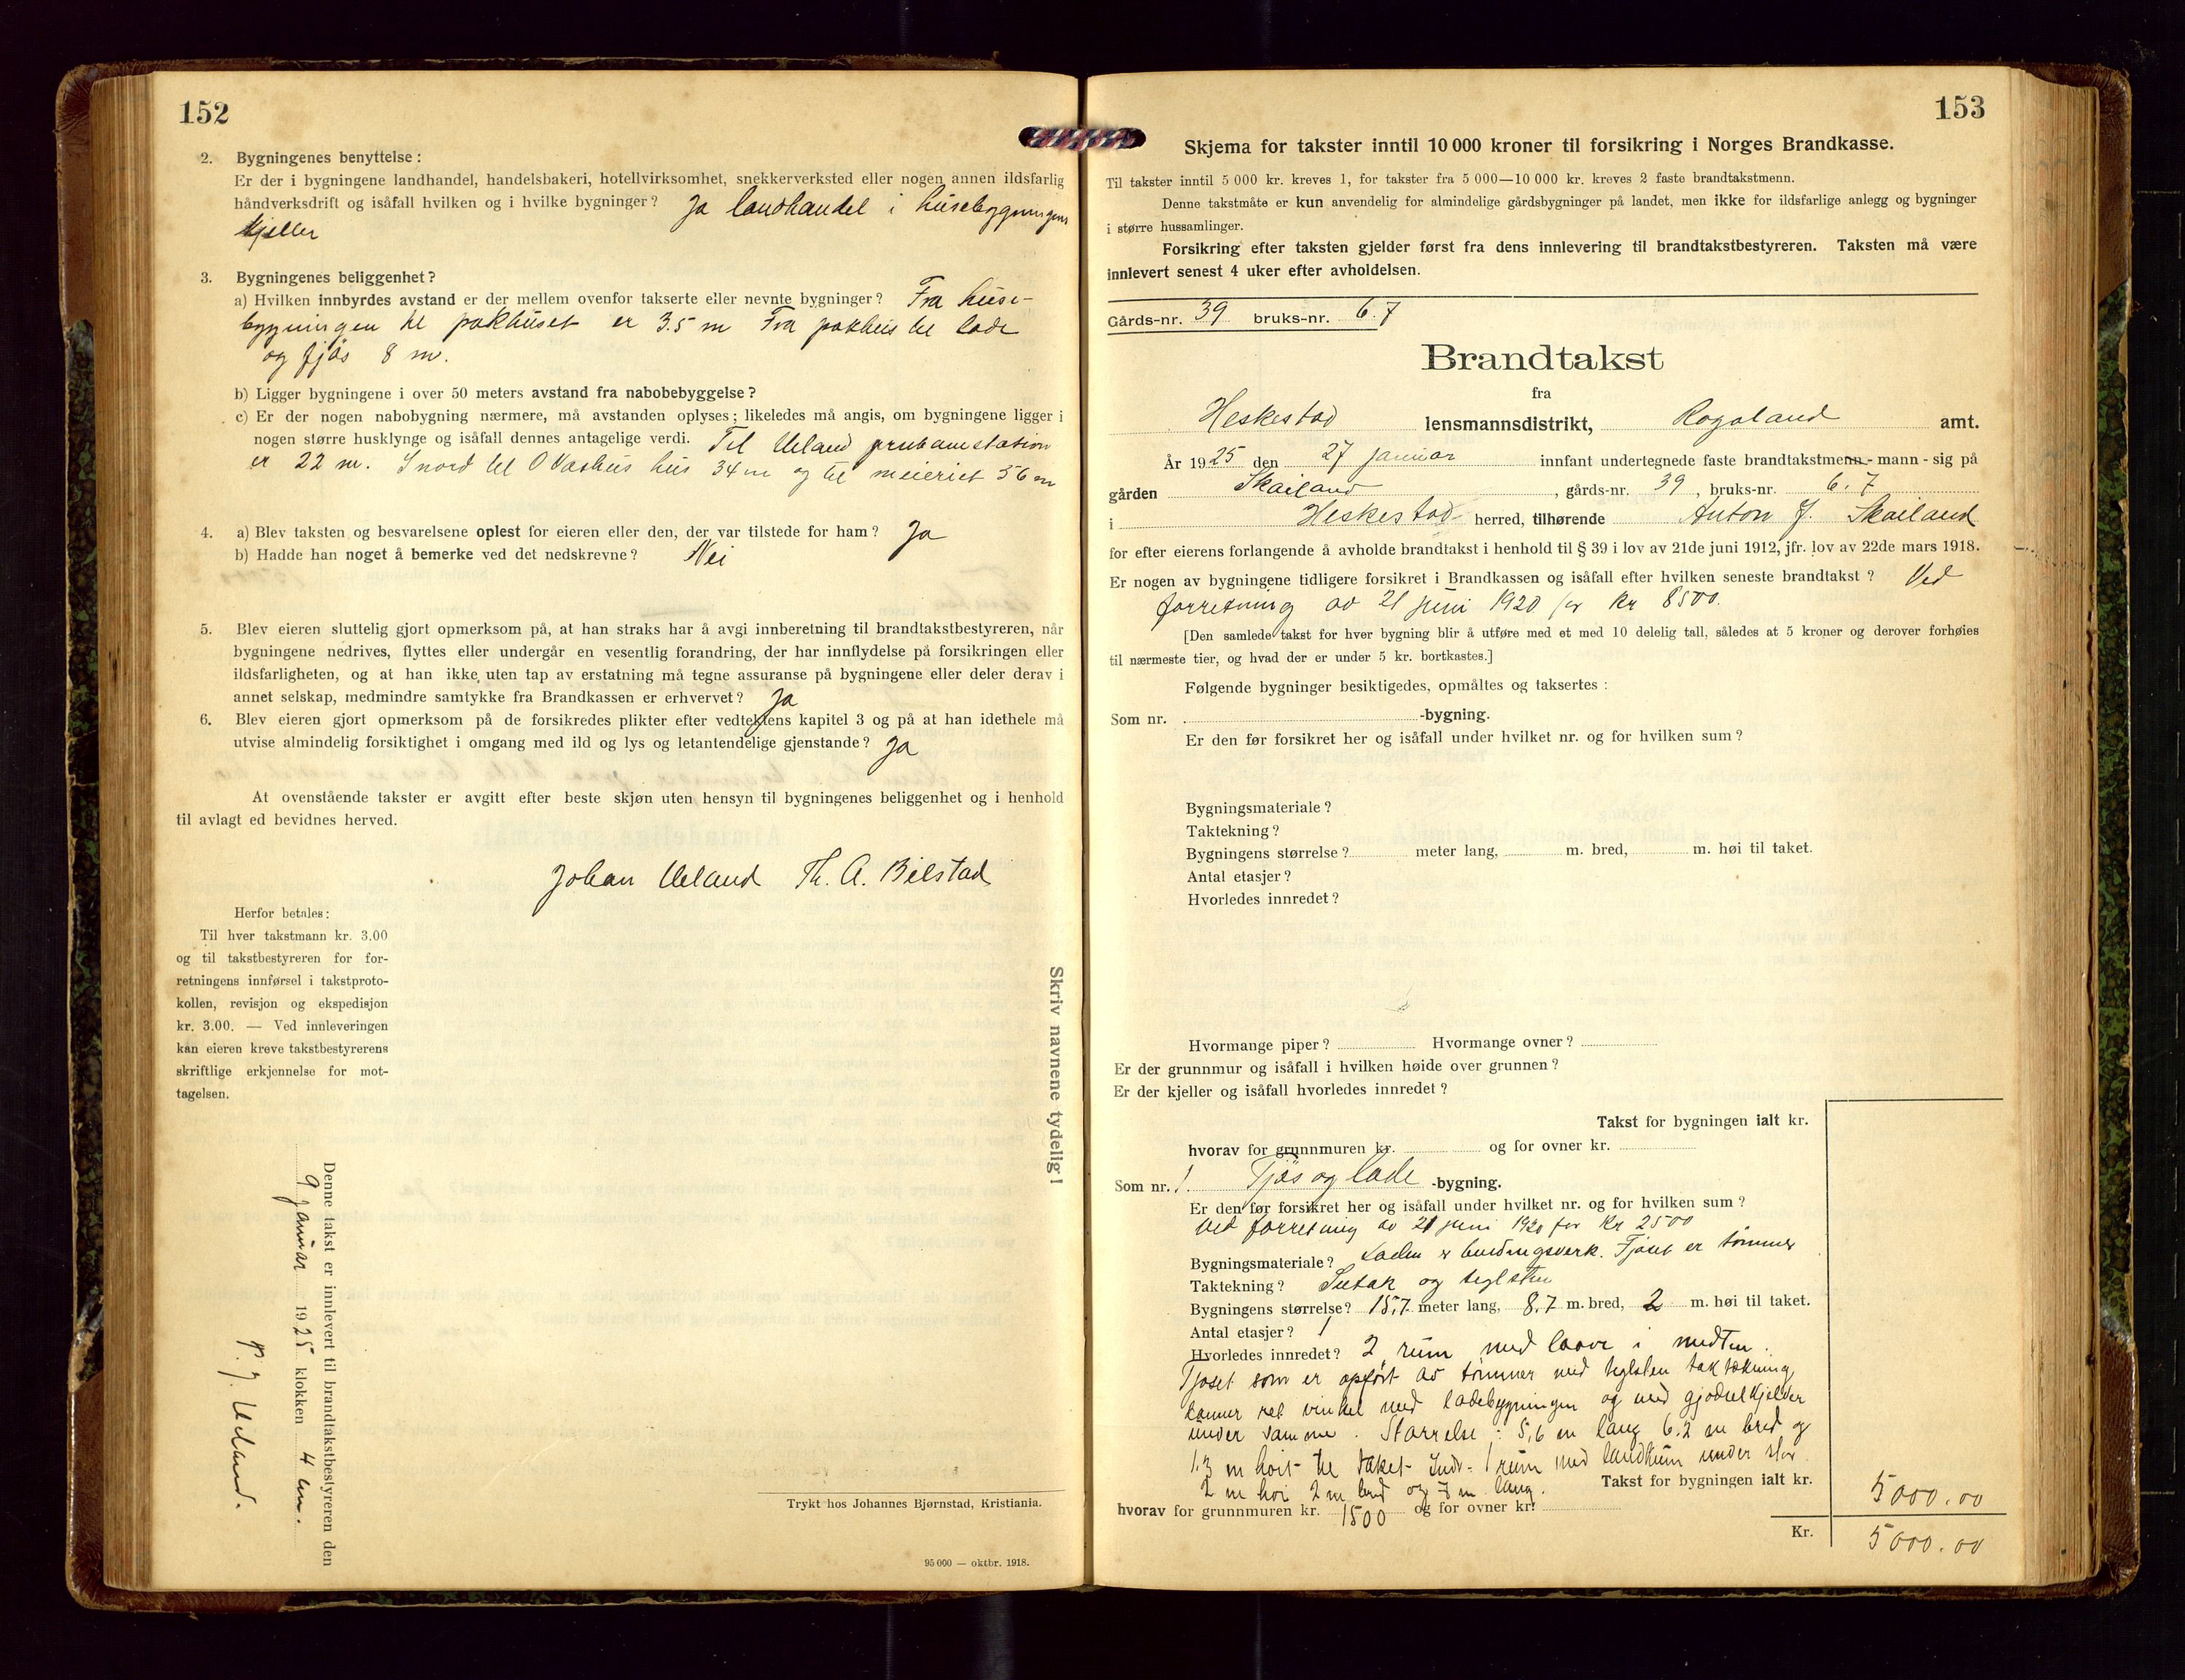 152
2. Bygningenes benyttelse:
Er der i bygningene landhandel, handelsbakeri, hotellvirksomhet, snekkerverksted eller nogen annen ildsfarlig
håndverksdrift og isåfall hvilken og i hvilke bygninger? Ja landhandel i husebygningens
kjeller
3. Bygningenes beliggenhet?
a) Hvilken innbyrdes avstand er der mellem ovenfor takserte eller nevnte bygninger? Fra huse-
bygningen til pakhuset er 3.5 m Fra pakhus til lade
og fjøs 8 m.
b) Ligger bygningene i over 50 meters avstand fra nabobebyggelse?
c) Er der nogen nabobygning nærmere, må avstanden oplyses; likeledes må angis, om bygningene ligger i
nogen større husklynge og isåfall dennes antagelige verdi. Til Ueland
er 22 m. I nord til O Vashus hus 34 m og til meieriet 56 m
4. a) Blev taksten og besvarelsene oplest for eieren eller den, der var tilstede for ham? Ja
b) Hadde han noget å bemerke ved det nedskrevne? Nei
5. Blev eieren sluttelig gjort opmerksom på, at han straks har å avgi innberetning til brandtakstbestyreren, når
bygningene nedrives, flyttes eller undergår en vesentlig forandring, der har innflydelse på forsikringen eller
ildsfarligheten, og at han ikke uten tap av erstatning må tegne assuranse på bygningene eller deler derav i
annet selskap, medmindre samtykke fra Brandkassen er erhvervet? Ja
6. Blev eieren gjort opmerksom på de forsikredes plikter efter vedtektens kapitel 3 og på at han idethele må
utvise almindelig forsiktighet i omgang med ild og lys og letantendelige gjenstande? Ja
At ovenstående takster er avgitt efter beste skjøn uten hensyn til bygningenes beliggenhet og i henhold
til avlagt ed bevidnes herved.
Johan Ueland Th. A. Bilstad
Herfor betales:
Til hver takstmann kr. 3.00
og til takstbestyreren for for-
retningens innførsel i takstproto-
kollen, revisjon og ekspedisjon
kr. 3.00. — Ved innleveringen
kan eieren kreve takstbestyrerens
skriftlige erkjennelse for mot-
tagelsen.
Skriv navnene tydelig!
Denne takst er innlevert til brandtakstbestyreren den
9 januar 1925 klokken 4 em.
P. J. Ueland.
Trykt hos Johannes Bjørnstad, Kristiania.
95 000 — oktbr. 1918.
153
Skjema for takster inntil 10 000 kroner til forsikring i Norges Brandkasse.
Til takster inntil 5 000 kr. kreves 1, for takster fra 5 000—10 000 kr. kreves 2 faste brandtakstmenn.
Denne takstmåte er kun anvendelig for almindelige gårdsbygninger på landet, men ikke for ildsfarlige anlegg og bygninger
i større hussamlinger.
Forsikring efter taksten gjelder først fra dens innlevering til brandtakstbestyreren. Taksten må være
innlevert senest 4 uker efter avholdelsen.
Gårds-nr. 39 bruks-nr. 6.7
Brandtakst
fra
Heskestad lensmannsdistrikt, Rogaland amt.
År 1925 den 27 januar innfant undertegnede faste brandtakstmenn - mann - sig på
gården Skailand, gårds-nr. 39, bruks-nr. 6. 7
i Heskestad herred, tilhørende Anton J. Skailand
for efter eierens forlangende å avholde brandtakst i henhold til § 39 i lov av 21de juni 1912, jfr. lov av 22de mars 1918.
Er nogen av bygningene tidligere forsikret i Brandkassen og isåfall efter hvilken seneste brandtakst? Ved
forretning av 21 juni 1920 for Kr 8500.
[Den samlede takst for hver bygning blir å utføre med et med 10 delelig tall, således at 5 kroner og derover forhøies
til nærmeste tier, og hvad der er under 5 kr. bortkastes.]
Følgende bygninger besiktigedes, opmåltes og taksertes:
Som nr. -bygning.
Er den før forsikret her og isåfall under hvilket nr. og for hvilken sum?
Bygningsmateriale?
Taktekning?
Bygningens størrelse? meter lang, m. bred, m. høi til taket.
Antal etasjer?
Hvorledes innredet?
Hvormange piper? Hvormange ovner?
Er der grunnmur og isåfall i hvilken høide over grunnen?
Er der kjeller og isåfall hvorledes innredet?
Takst for bygningen ialt kr.
hvorav for grunnmuren kr. og for ovner kr.
Som nr. 1. Fjøs og lade -bygning.
Er den før forsikret her og isåfall under hvilket nr. og for hvilken sum?
Ved forretning av 21 juni 1920 for Kr 2500
Bygningsmateriale? Laden er bindingsverk. Fjøset er tømmer
Taktekning? Sutak og teglsten
Bygningens størrelse? 15,7 meter lang, 8,7 m. bred, 2 m. høi til taket.
Antal etasjer? 1
Hvorledes innredet? 2 rum med laave i midten.
Fjøset som er opført av tømmer med teglsten taktækning
danner ret vinkel med ladebygningen og med gjødselkjelder
under samme. Størrelse: 5,6 m lang 6.2 m bred og
1.3 m høit til taket. Indr. 1 rum med landkum under stor
2 m høi 2 m bred og 7 m lang. Takst for bygningen ialt kr. 5000.00
hvorav for grunnmuren kr. 1500 og for ovner kr.
Kr. 5000.00